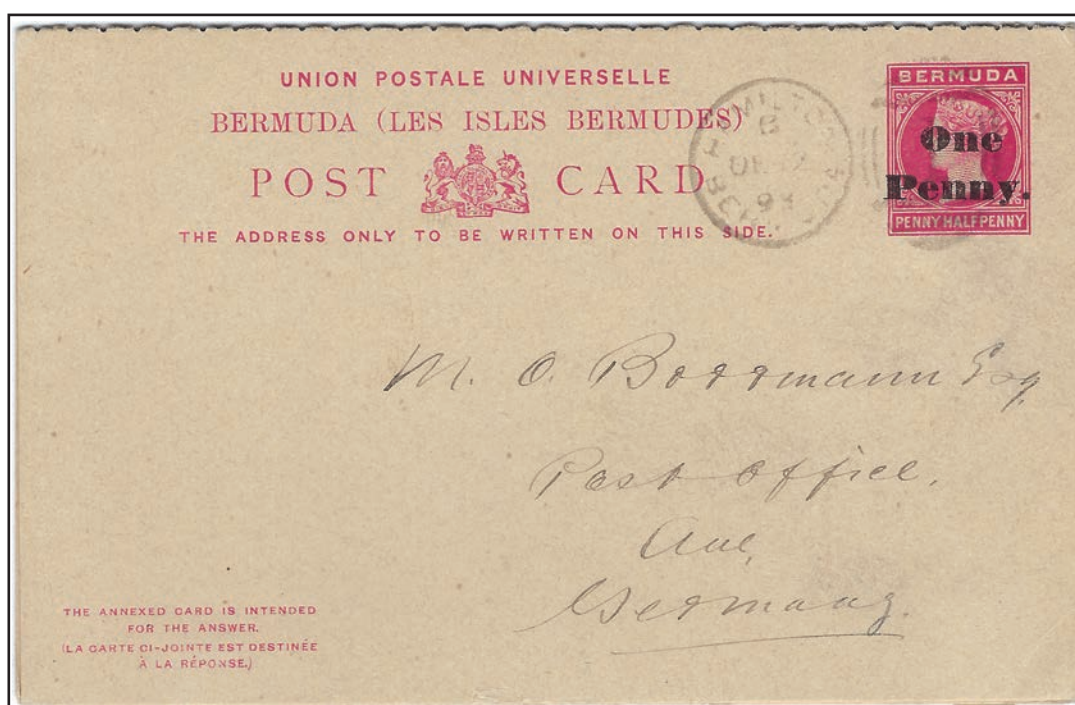 UNION POSTALE UNIVERSELLE
BERMUDA (LES ISLES BERMUDES)
POST CARD
THE ADDRESS ONLY TO BE WRITTEN ON THIS SIDE.
BERMUDA
One
Penny.
PENNY HALFPENNY
M. O. Borrmann Esq
Post Office,
Aue,
Germany.
THE ANNEXED CARD IS INTENDED
FOR THE ANSWER.
(LA CARTE CI-JOINTE EST DESTINÉE
À LA RÉPONSE.)